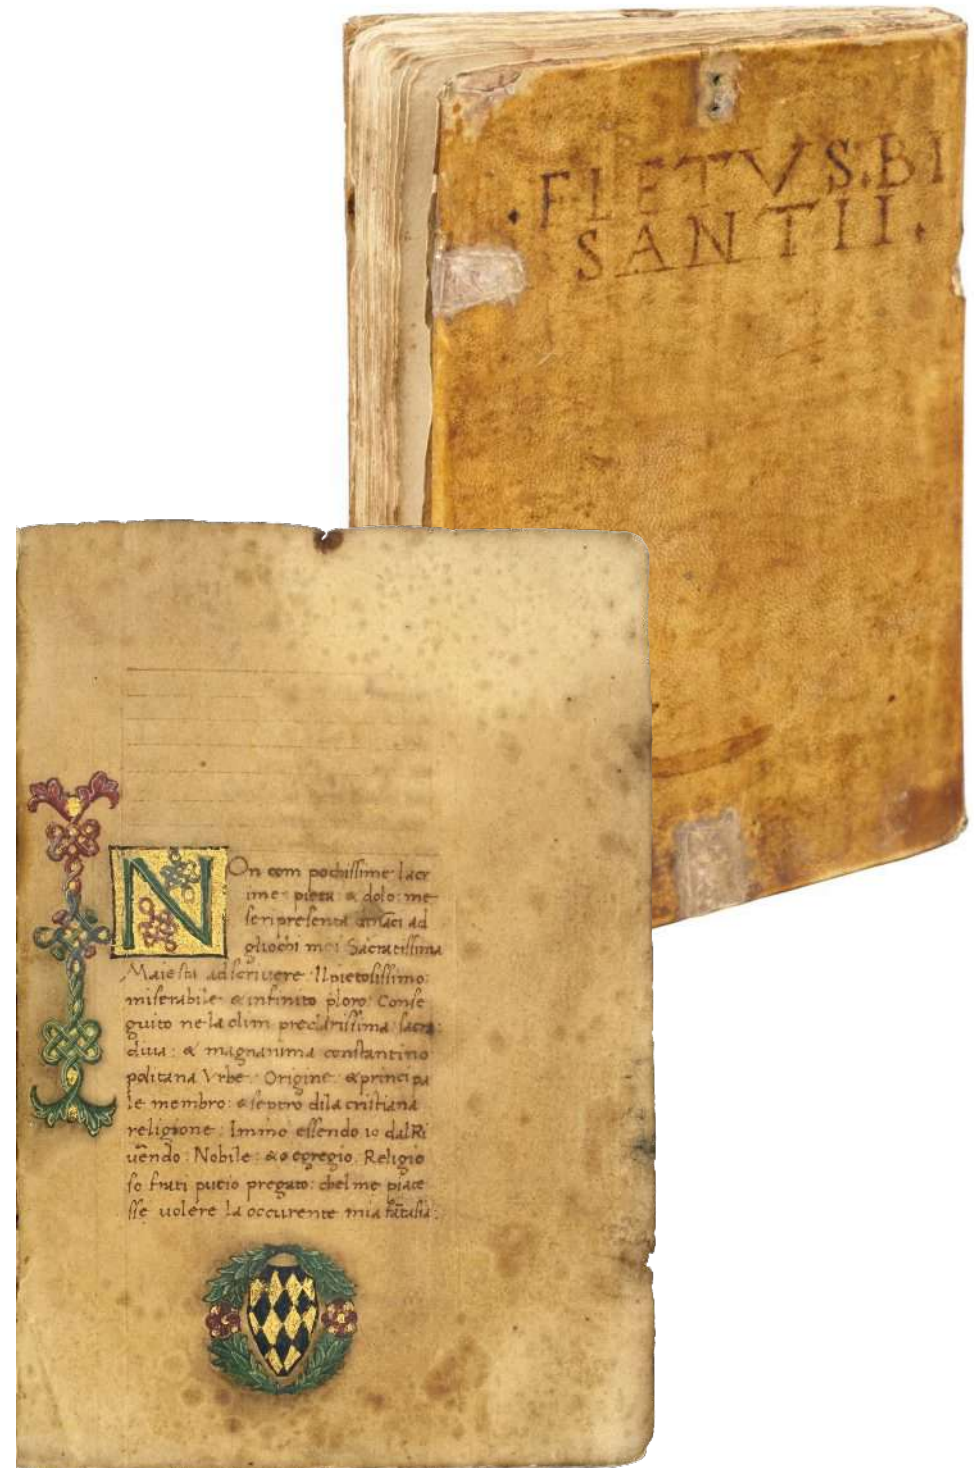 .FLETVS.BI
SANTII.
NOn com pochissime lacr
ime: pieta: & dolo: me
seripresenta ad
gliochi mei Sacratissima
Maiesta adscrivere: Il pietosissimo:
miserabile: & infinito ploro: Conse
guito ne la olim preclarissima: sacra:
diua: & magnanima constantino
politana Vrbe: Origine: & principa
le membro: & sceptro dila cristiana
religione: Immo essendo io dal Ri
uēndo: Nobile: & egregio. Religio
so frati pregato: chel me piace
sse uolere la occurente mia fātasia: